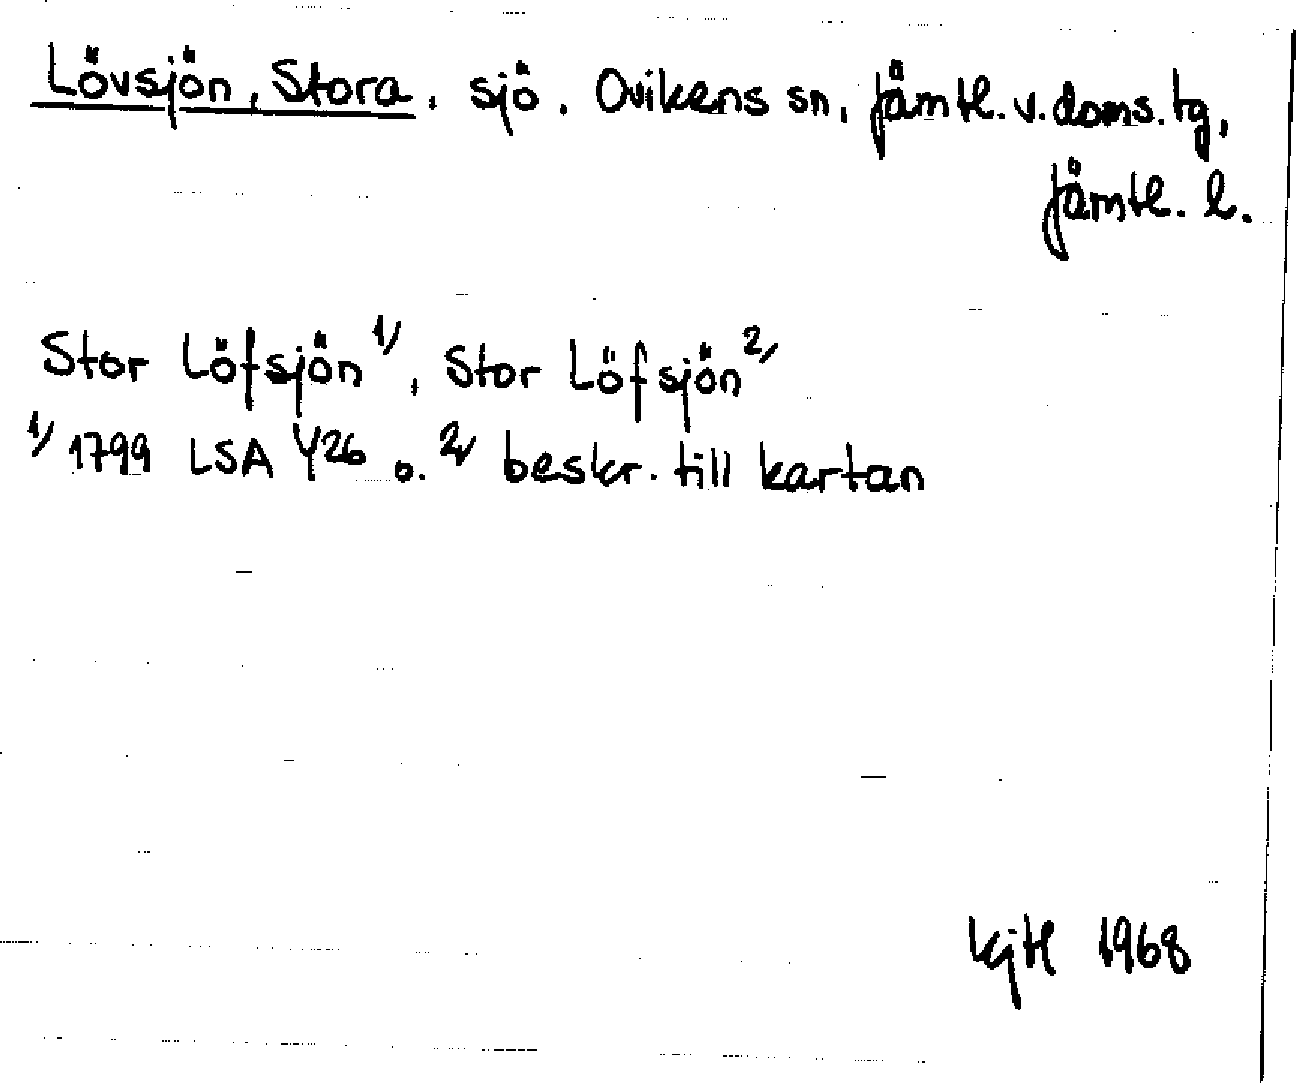 Lövsjön, Stora, sjö. Ovikens sn, Jämtl. v. doms. tg,
Jämtl. l.
Stor Löfsjön 1/, Stor Löfsjön 2/
1/ 1799 LSA Y26 o. 2/ beskr. till kartan
1968